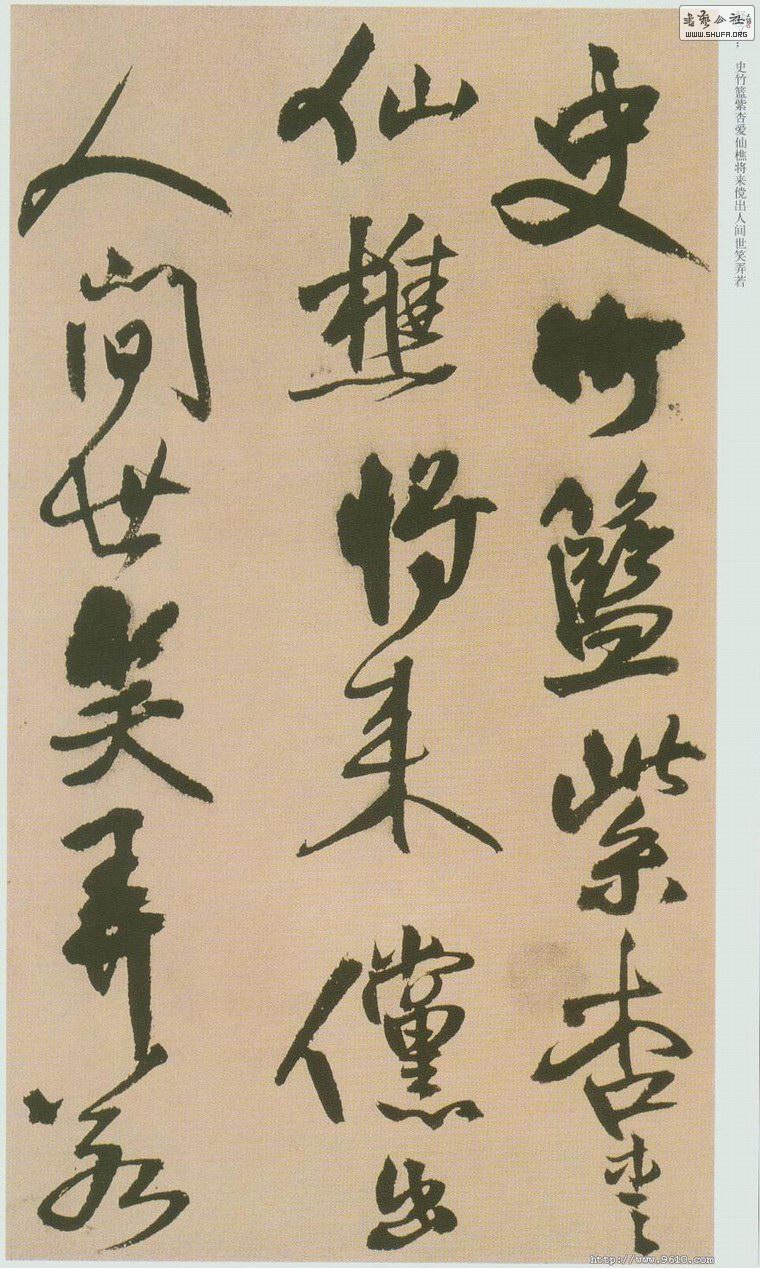 書藝公社
WWW.SHUFA.ORG
史竹篮紫杏爱仙樵将来傥出人间世笑弄若
史竹籃紫杏
仙樵将来儻出
人間世笑弄若
http://www.9610.com